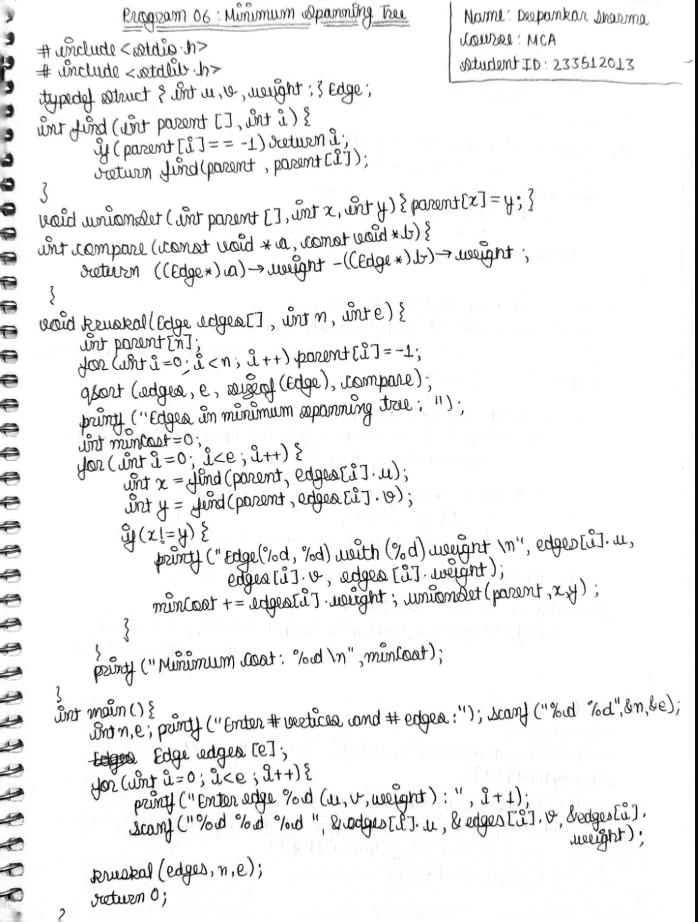 Program 06 : Minimum Spanning Tree
Name: Deepankar Sharma
Course: MCA
Student ID: 233512013
# include <stdio.h>
# include <stdlib.h>
typedef struct { int u,v, weight ; } Edge ;
int find (int parent [], int i) {
if (parent[i] == -1) return i;
return find(parent , parent[i]);
}
void unionSet (int parent [], int x, int y) { parent[x] = y; }
int compare (const void * a, const void * b) {
return ((Edge*) a) → weight - ((Edge*) b) → weight ;
}
void kruskal (Edge edges[] , int n, int e) {
int parent [n];
for (int i=0; i<n; i++) parent [i] = -1;
qsort (edges, e, sizeof (Edge), compare);
printf ("Edges in minimum spanning tree : ");
int minCost = 0;
for (int i=0; i<e; i++) {
int x = find (parent, edges [i] . u);
int y = find (parent, edges [i] . v);
if (x != y) {
printf ("Edge(%d, %d) with (%d) weight \n", edges[i] . u,
edges [i] . v, edges [i] . weight);
minCost += edges[i] . weight ; unionSet (parent ,x,y) ;
}
}
printf ("Minimum Cost: %d \n", minCost);
}
int main () {
int n, e ; printf ("Enter # vertices and # edges :"); scanf ("%d %d", &n, &e);
Edges Edge edges [e];
for (int i=0 ; i<e ; i++) {
printf ("Enter edge %d (u, v, weight) : ", i+1);
scanf ("%d %d %d ", & edges[i] . u, & edges [i] . v, &edges[i] .
weight) ;
kruskal (edges, n, e);
return 0;
}